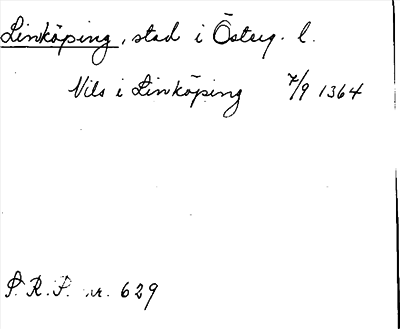 Linköping, stad i Österg. l.
Nils i Linköping 7/9 1364
S. R. P. nr. 629